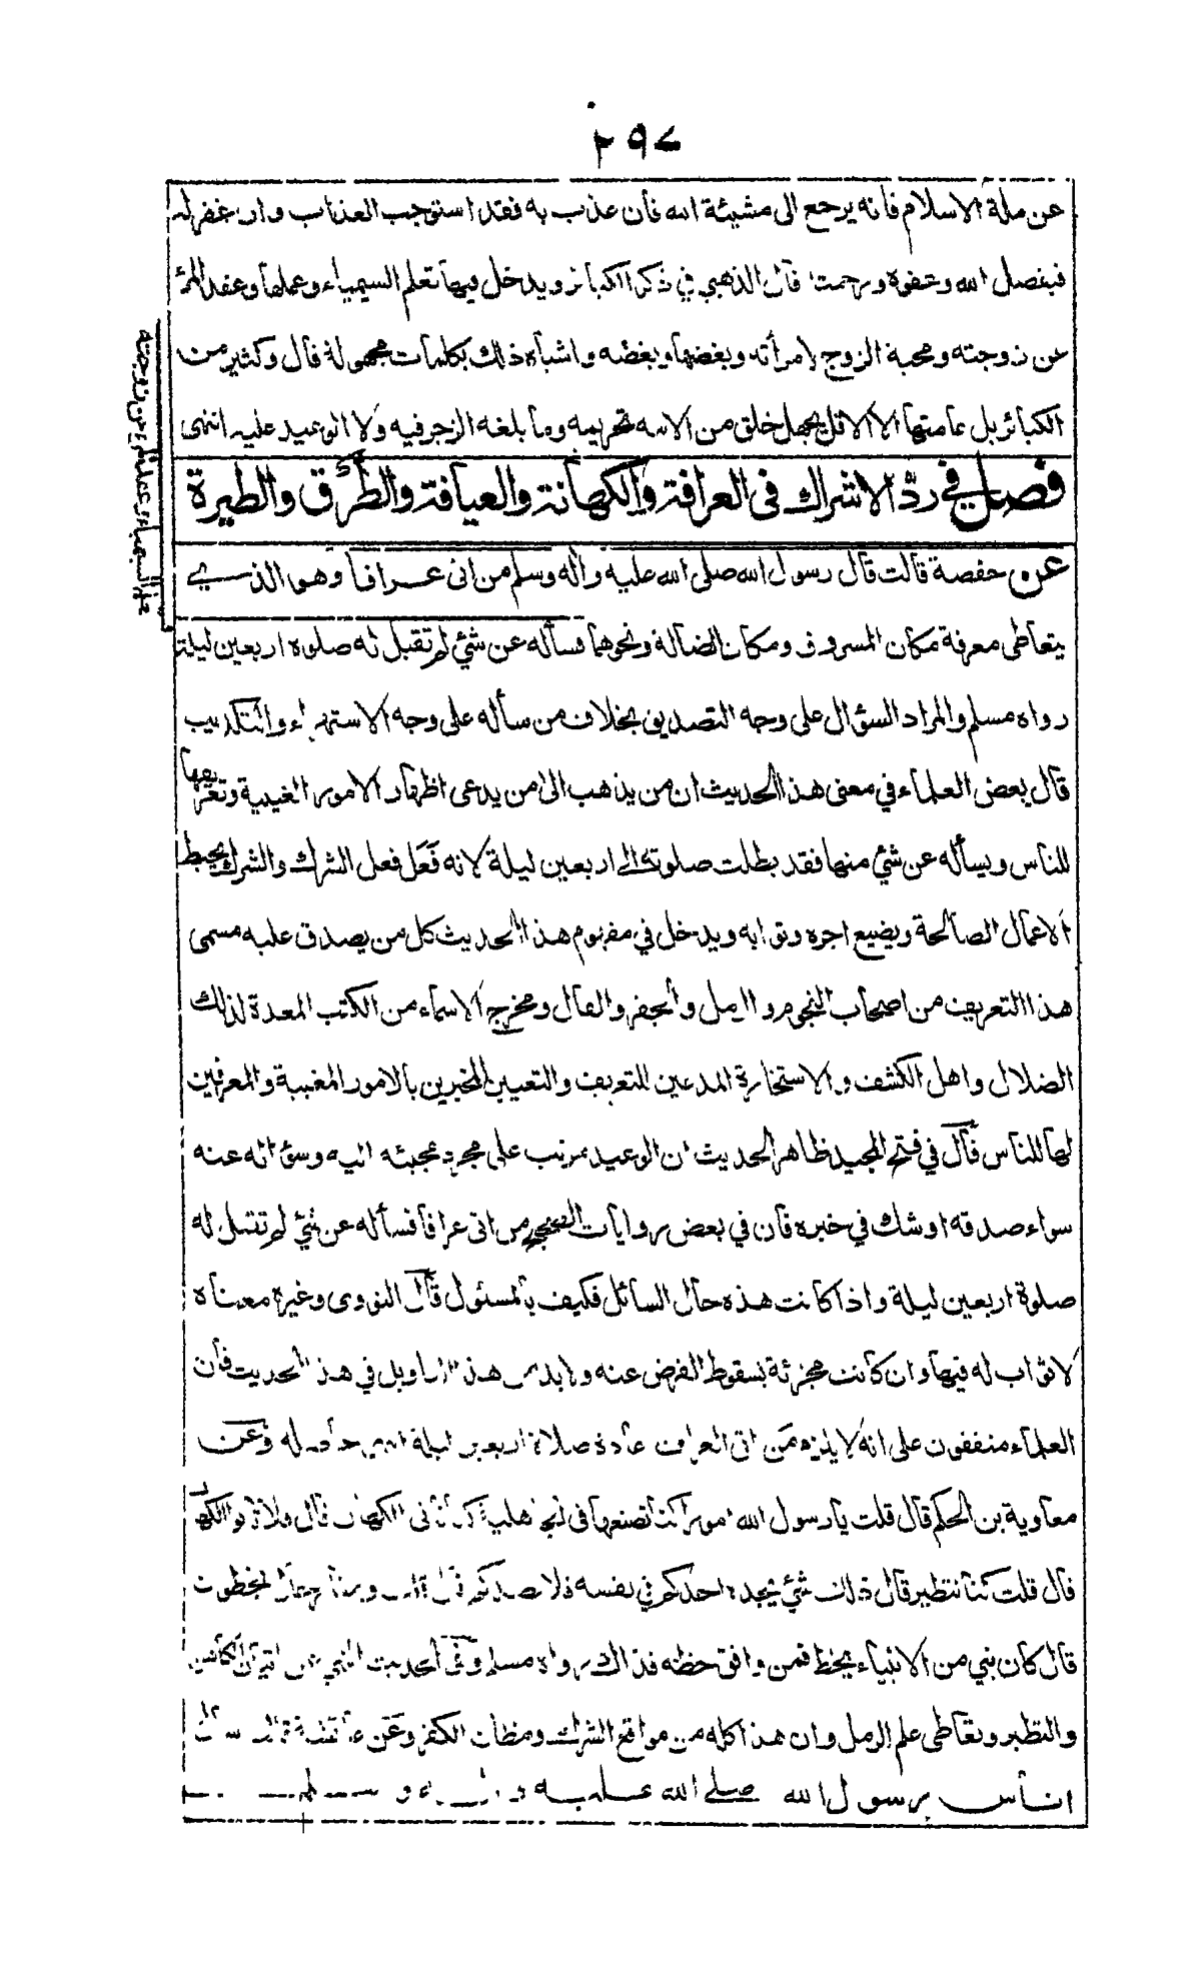 ٢٩٧
عن ملة الاسلام فانه يرجع الى مشيئة الله فان عذب به فقد استوجب العذاب وان غفر له
فبفضل الله وعفوه ورحمته قال الذهبي في ذكر الكبائر ويدخل فيها تعلم السيمياء وعملها وعقد المرء
عن زوجته ومحبة الزوج لامرأته وبغضها وبغضه واشباه ذلك بكلمات مجهولة قال وكثير من
الكبائر بل عامتها الا الاقل يجهل خلق من الامة تحريمه وما بلغه الزجر فيه ولا الوعيد عليه انتهى
فصل في ردّ الاشراك فى العرافة والكهانة والعيافة والطَّرْق والطيرة
عن حفصة قالت قال رسول الله صلى الله عليه واله وسلم من اتى عرافا وهو الذي
يتعاطى معرفة مكان المسروق ومكان الضالة ونحوهما فسأله عن شئ لم تقبل له صلوة اربعين ليلة
رواه مسلم والمراد السؤال على وجه التصديق بخلاف من سأله على وجه الاستهزاء والتكذيب
قال بعض العلماء في معنى هذا الحديث ان من يذهب الى من يدعى اظهار الامور الغيبية وتعريفها
للناس ويسأله عن شئ منها فقد بطلت صلوته الى اربعين ليلة لانه فَعَل فعل الشرك والشرك يحبط
الاعمال الصالحة ويضيع اجره وثوابه ويدخل في مفهوم هذا الحديث كل من يصدق عليه مسمى
هذا التعريف من اصحاب النجوم والرمل والجفر والفال ومخرج الاسماء من الكتب المعدة لذلك
الضلال واهل الكشف والاستخارة المدعين للتعريف والتعيين المخبرين بالامور المغيبة والمعرفين
لها للناس قال في فتح المجيد ظاهر الحديث ان الوعيد مرتب على مجرد مجيئه اليه وسؤاله عنه
سواء صدقه او شك في خبره فان في بعض روايات الصحيح من اتى عرافا فسأله عن شئ لم تقبل له
صلوة اربعين ليلة واذا كانت هذه حال السائل فكيف بالمسئول قال النووى وغيره معناه
لا ثواب له فيها وان كانت مجزئة بسقوط الفرض عنه ولا بد من هذا التاويل في هذا الحديث فان
العلماء متفقون على انه لا يلزم مَن اتى العراف عادة صلاة اربعين ليلة انتهى حاصله وعن
معاوية بن الحكم قال قلت يا رسول الله امورا كنا نصنعها فى الجاهلية كنا ناتى الكهان قال فلا تاتوا الكهان
قال قلت كنا نتطير قال ذلك شئ يجده احدكم في نفسه فلا يصدنكم قال قلت ومنا رجال يخطون
قال كان نبي من الانبياء يخط فمن وافق خطه فذاك رواه مسلم وفى الحديث النهي عن اتيان الكاهن
والتطير وتعاطى علم الرمل وان هذا كله من مواقع الشرك ومظان الكفر وعن عائشة قالت سال
اناس رسول الله صلى الله عليه واله وسلم
علم السيمياء وعقد المرء عن زوجته